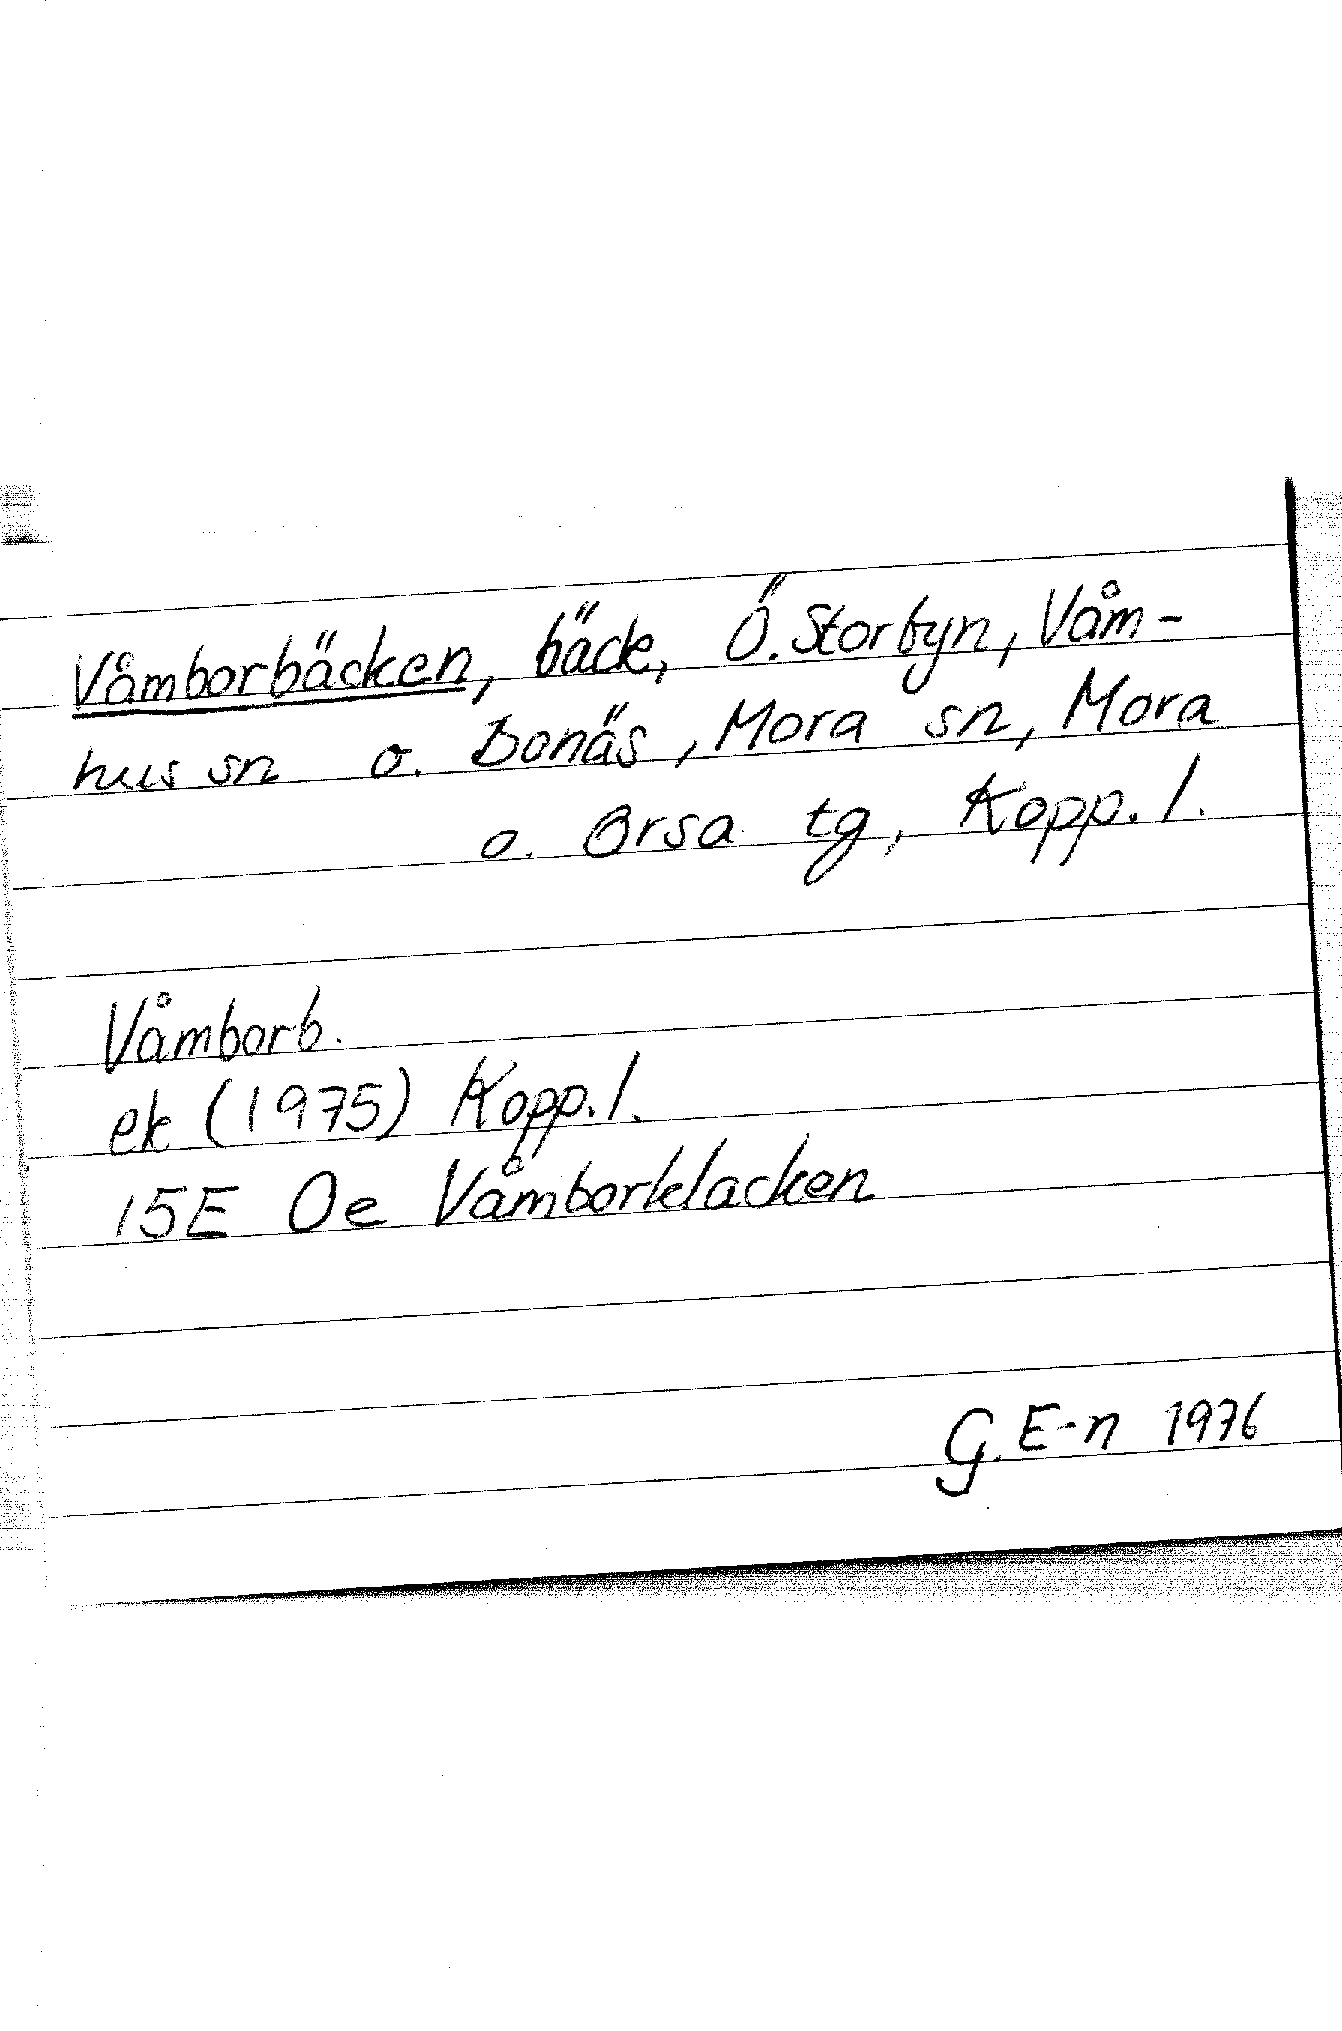 Våmborbäcken, bäck, Ö. Storbyn, Våm-
hus sn o. Bonäs, Mora sn, Mora
o. Orsa tg, Kopp. l.
Våmborb.
ek (1975) Kopp. l.
15E 0e Våmborklacken
G. E-n 1976